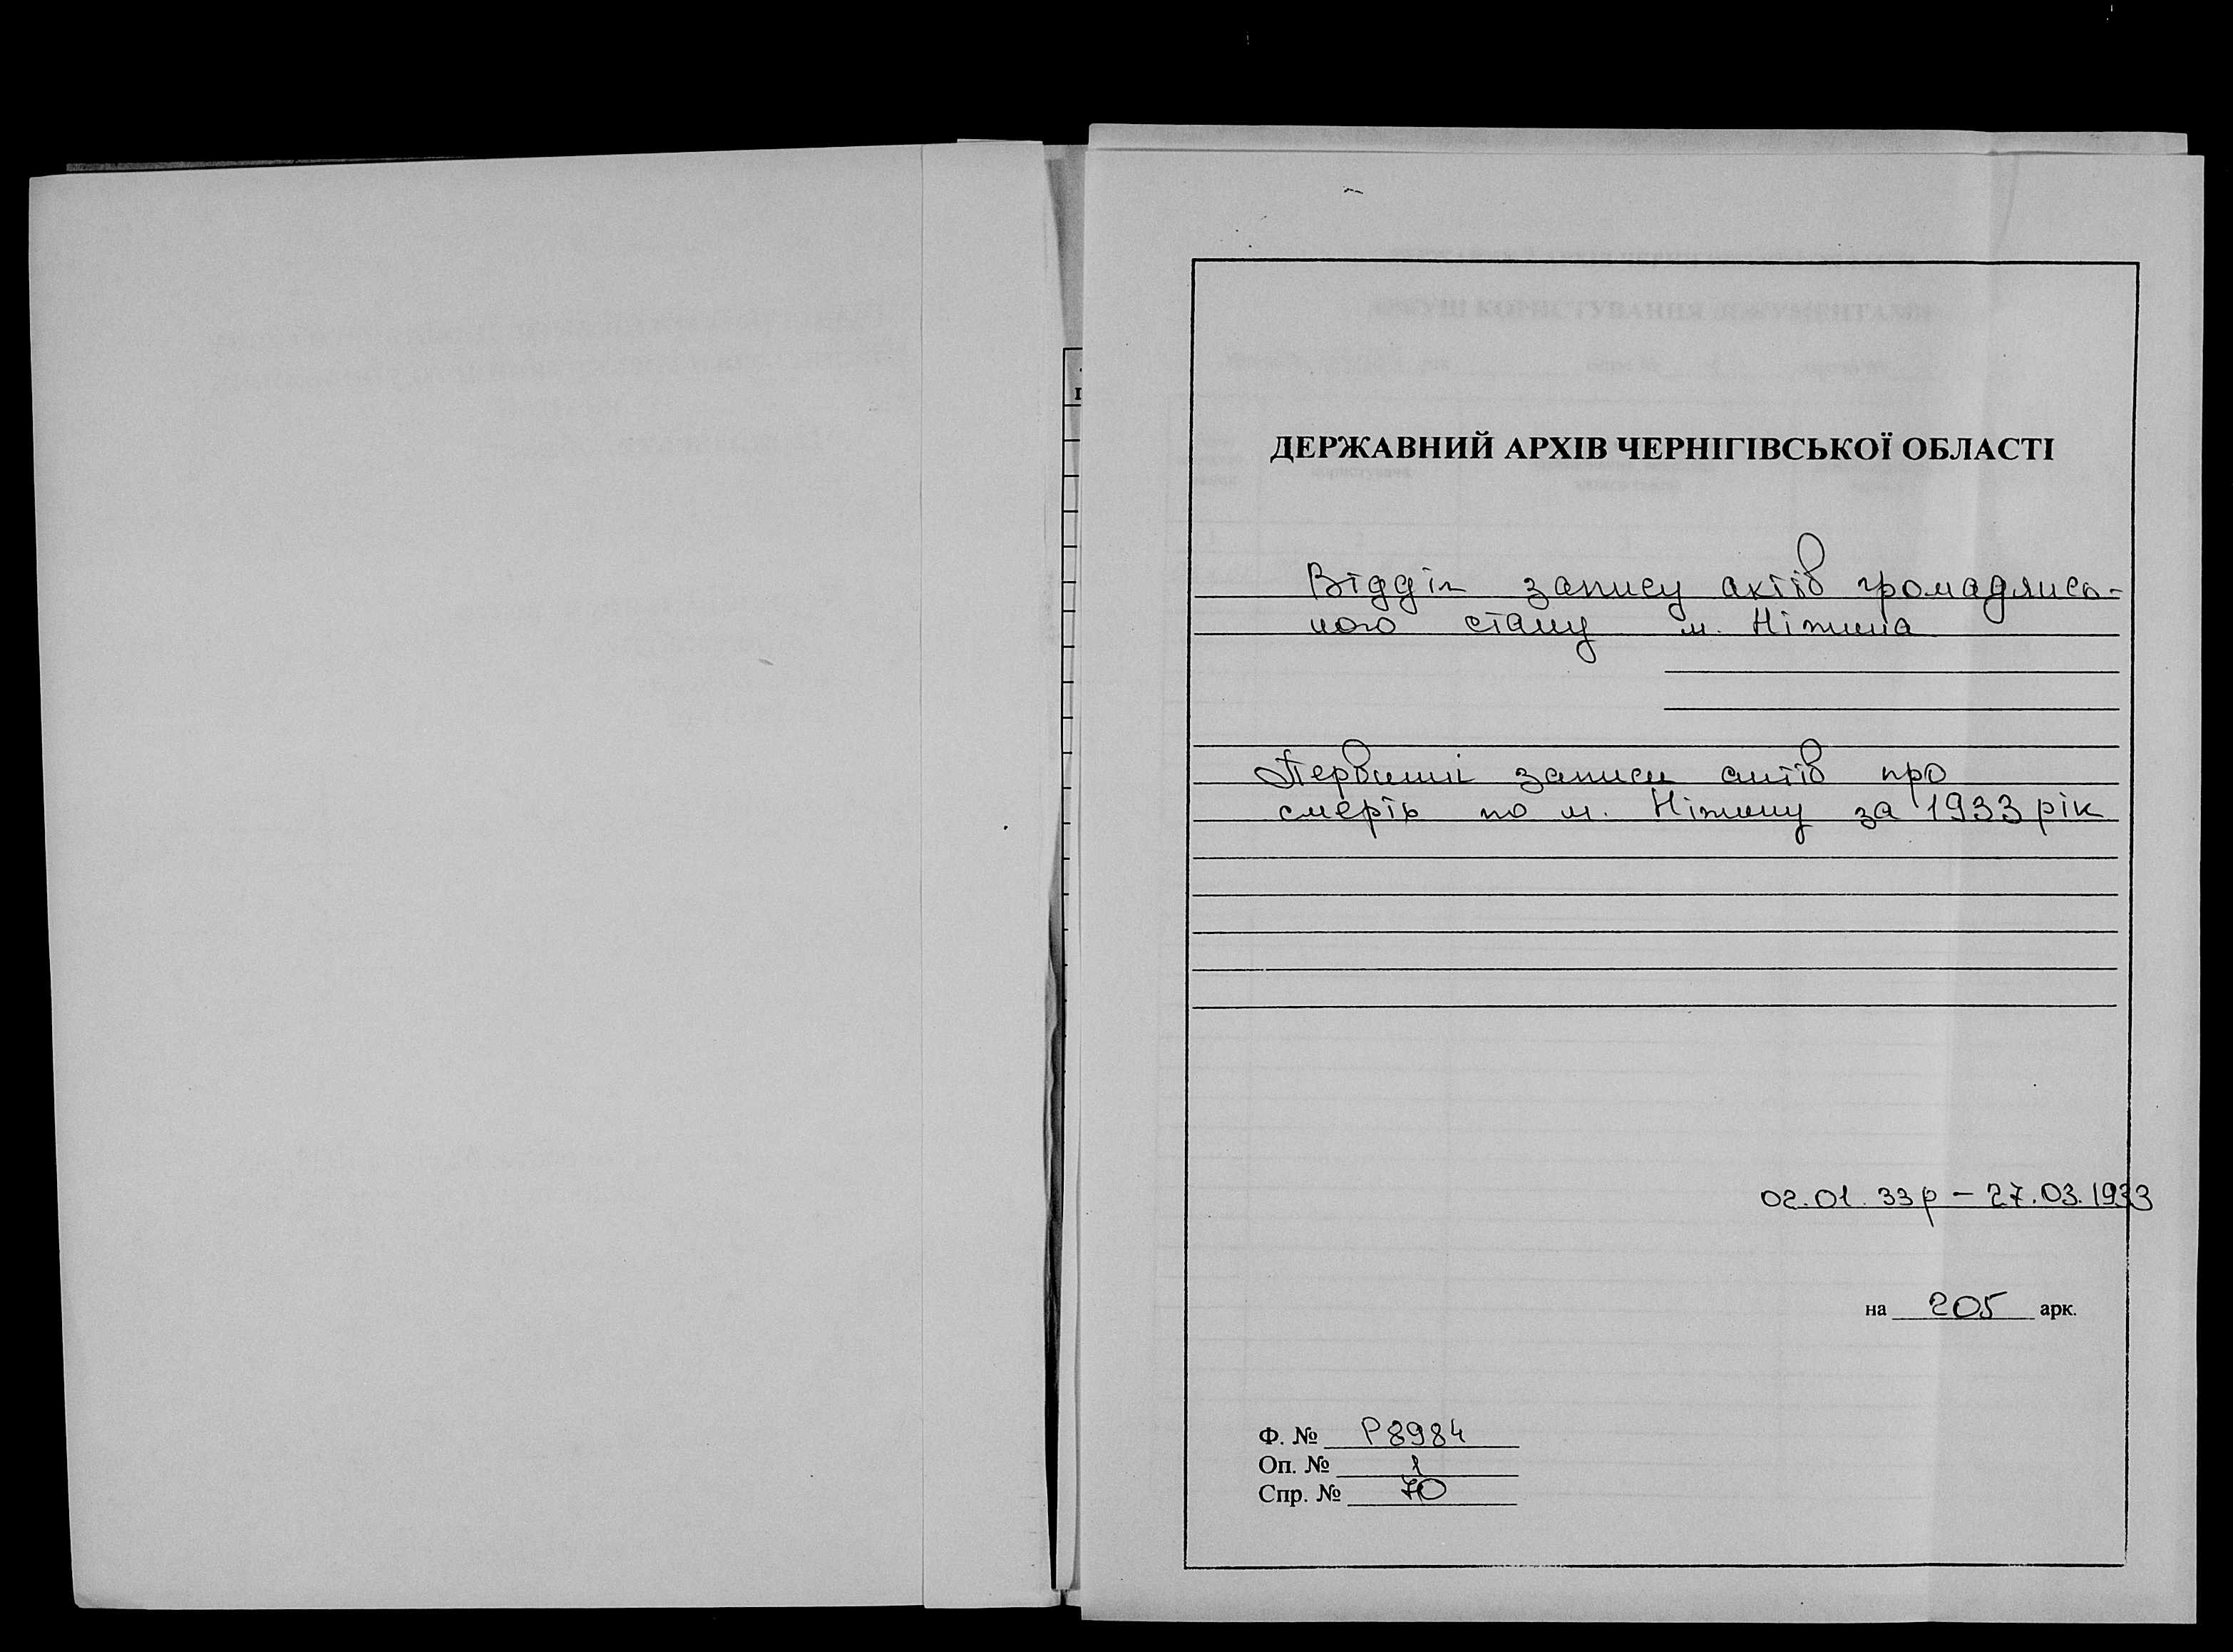 ДЕРЖАВНИЙ АРХІВ ЧЕРНІГІВСЬКОЇ ОБЛАСТІ
Відділ запису актів громадянсь-
кого стану м. Ніжина
Первинні записи актів про
смерть по м. Ніжину за 1933 рік
02.01.33р – 27.03.1933
на 205 арк.
Ф. № Р8984
Оп. № 1
Спр. № 70